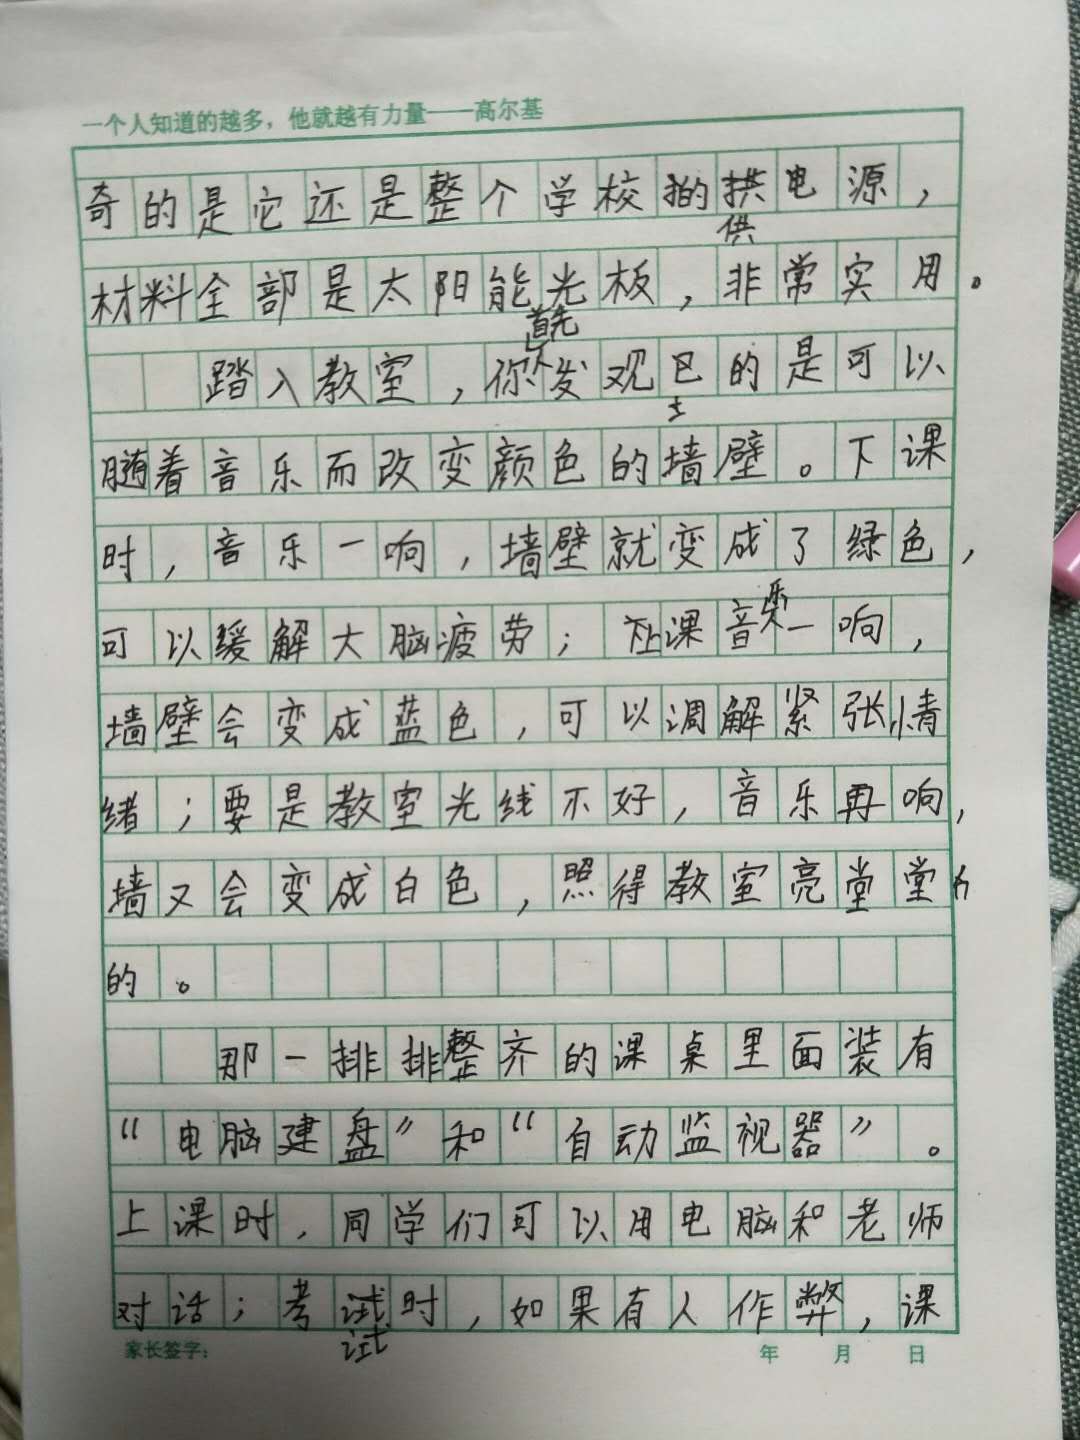 一个人知道的越多，他就越有力量——高尔基
奇的是它还是整个学校的供电源，
材料全部是太阳能光板，非常实用。
踏入教室，你首先发观的是可以
随着音乐而改变颜色的墙壁。下课
时，音乐一响，墙壁就变成了绿色，
可以缓解大脑疲劳；上课音乐一响，
墙壁会变成蓝色，可以调解紧张情
绪；要是教室光线不好，音乐再响，
墙又会变成白色，照得教室亮堂堂
的。
那一排排整齐的课桌里面装有
“电脑建盘”和“自动监视器”。
上课时，同学们可以用电脑和老师
对话；考试时，如果有人作弊，课
家长签字： 年 月 日